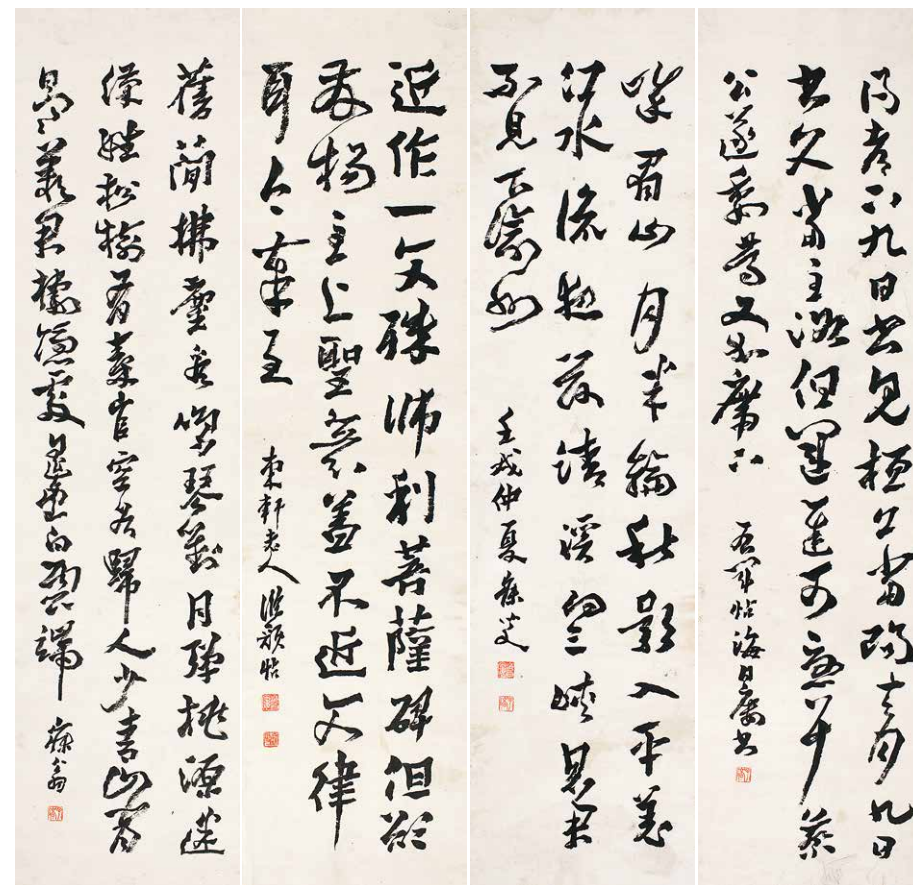 得孝下九日書見桓公當陽去月九日
書久當至洛但運遲可憂耳蔡
公遂委篤又加廢下
海日廔書
峨眉山月半輪秋影入平羌
江水流夜發清溪向三峽思君
不見下渝州
壬戌仲夏 寐叟
近作一文殊師利菩薩碑但欲
發揚主上聖 蓋不近文律
耳今 藁至
東軒老人臨 帖
舊簡拂塵看鳴琴對月彈桃源迷
漢姓松樹有秦官空谷歸人少青山背
日寒羨君棲隱處遙望白雲端
寐翁